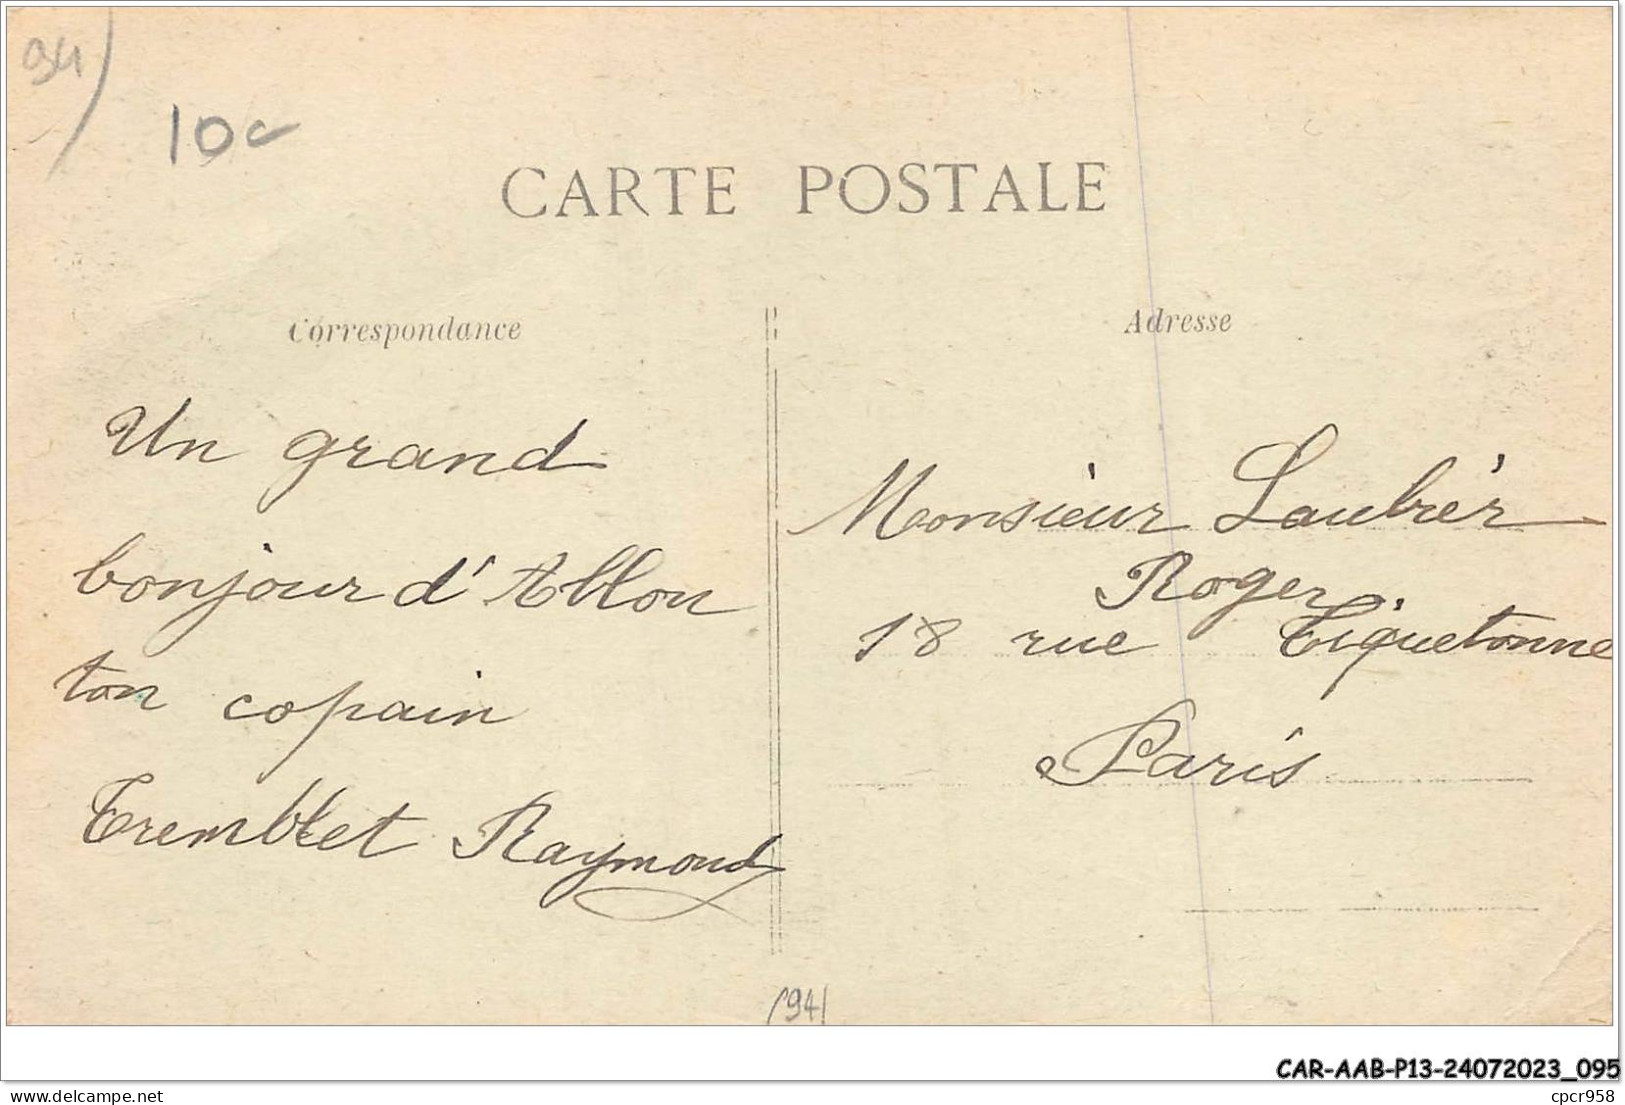 94)
10c
CARTE POSTALE
Correspondance
Adresse
Un grand
bonjour d'Ablon
ton copain
Tremblet Raymond
Monsieur Laubier
Roger
18 rue Tiquetonne
Paris
(94)
CAR-AAB-P13-24072023_095
delcampe.net
cpcr958